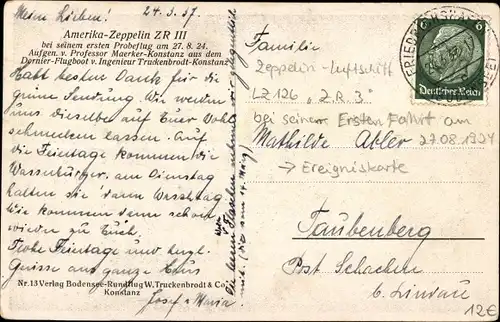 Meine Lieben! 24.3.37.
Amerika-Zeppelin ZR III
bei seinem ersten Probeflug am 27. 8. 24.
Aufgen. v. Professor Maerker-Konstanz aus dem
Dornier-Flugboot v. Ingenieur Truckenbrodt-Konstanz
Habt besten Dank für die
grüne Sendung. Wir werden
uns dieselbe auf Euer Wohl
schmecken lassen. Auf
die Feiertage kommen die
Wasserburger, am Dienstag
halten sie dann Waschtag.
Wir kommen dann schon
wieder zu Euch.
Frohe Feiertage und herzl.
Grüsse ans ganze Haus
Josef u. Maria
Nr. 13 Verlag Bodensee-Rundflug W. Truckenbrodt & Co.
Konstanz
Die leeren Flaschen nehmen wir
mit. (die vom 14. März)
6
Deutsches Reich
FRIEDRICHSHAFEN
Familie
Zeppelin-Luftschiff
LZ 126 "Z.R. 3"
bei seiner Ersten Fahrt am
27.08.1924
Mathilde Abler
→ Ereigniskarte
Taubenberg
Post Schachen
b. Lindau
12€